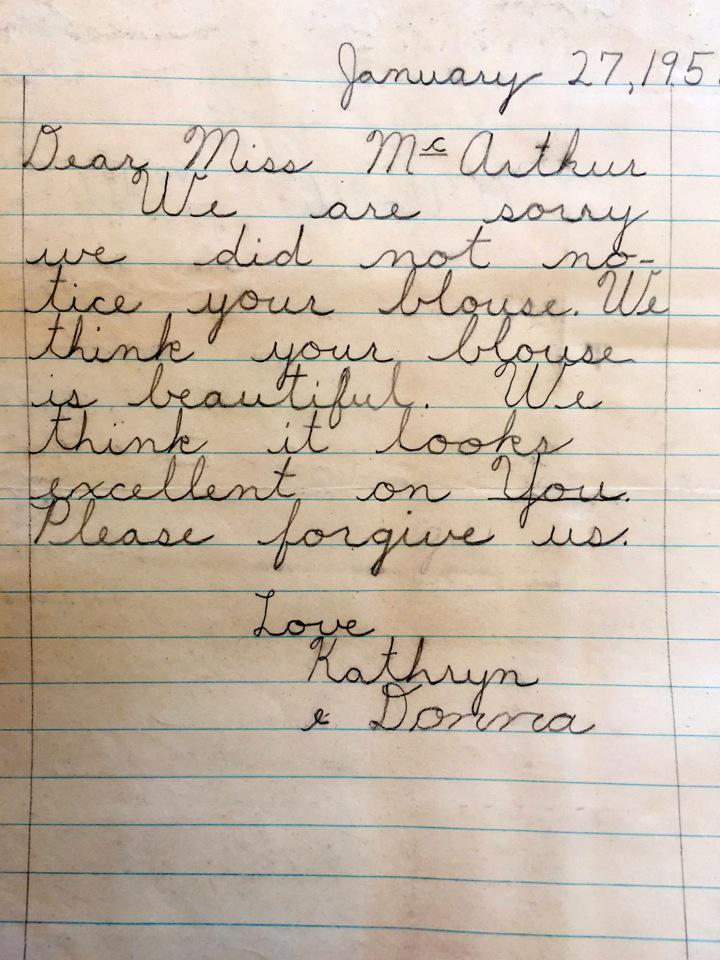 January 27, 195
Dear Miss McArthur
We are sorry
we did not no-
tice your blouse. We
think your blouse
is beautiful. We
think it looks
excellent on You.
Please forgive us.
Love
Kathryn
& Donna